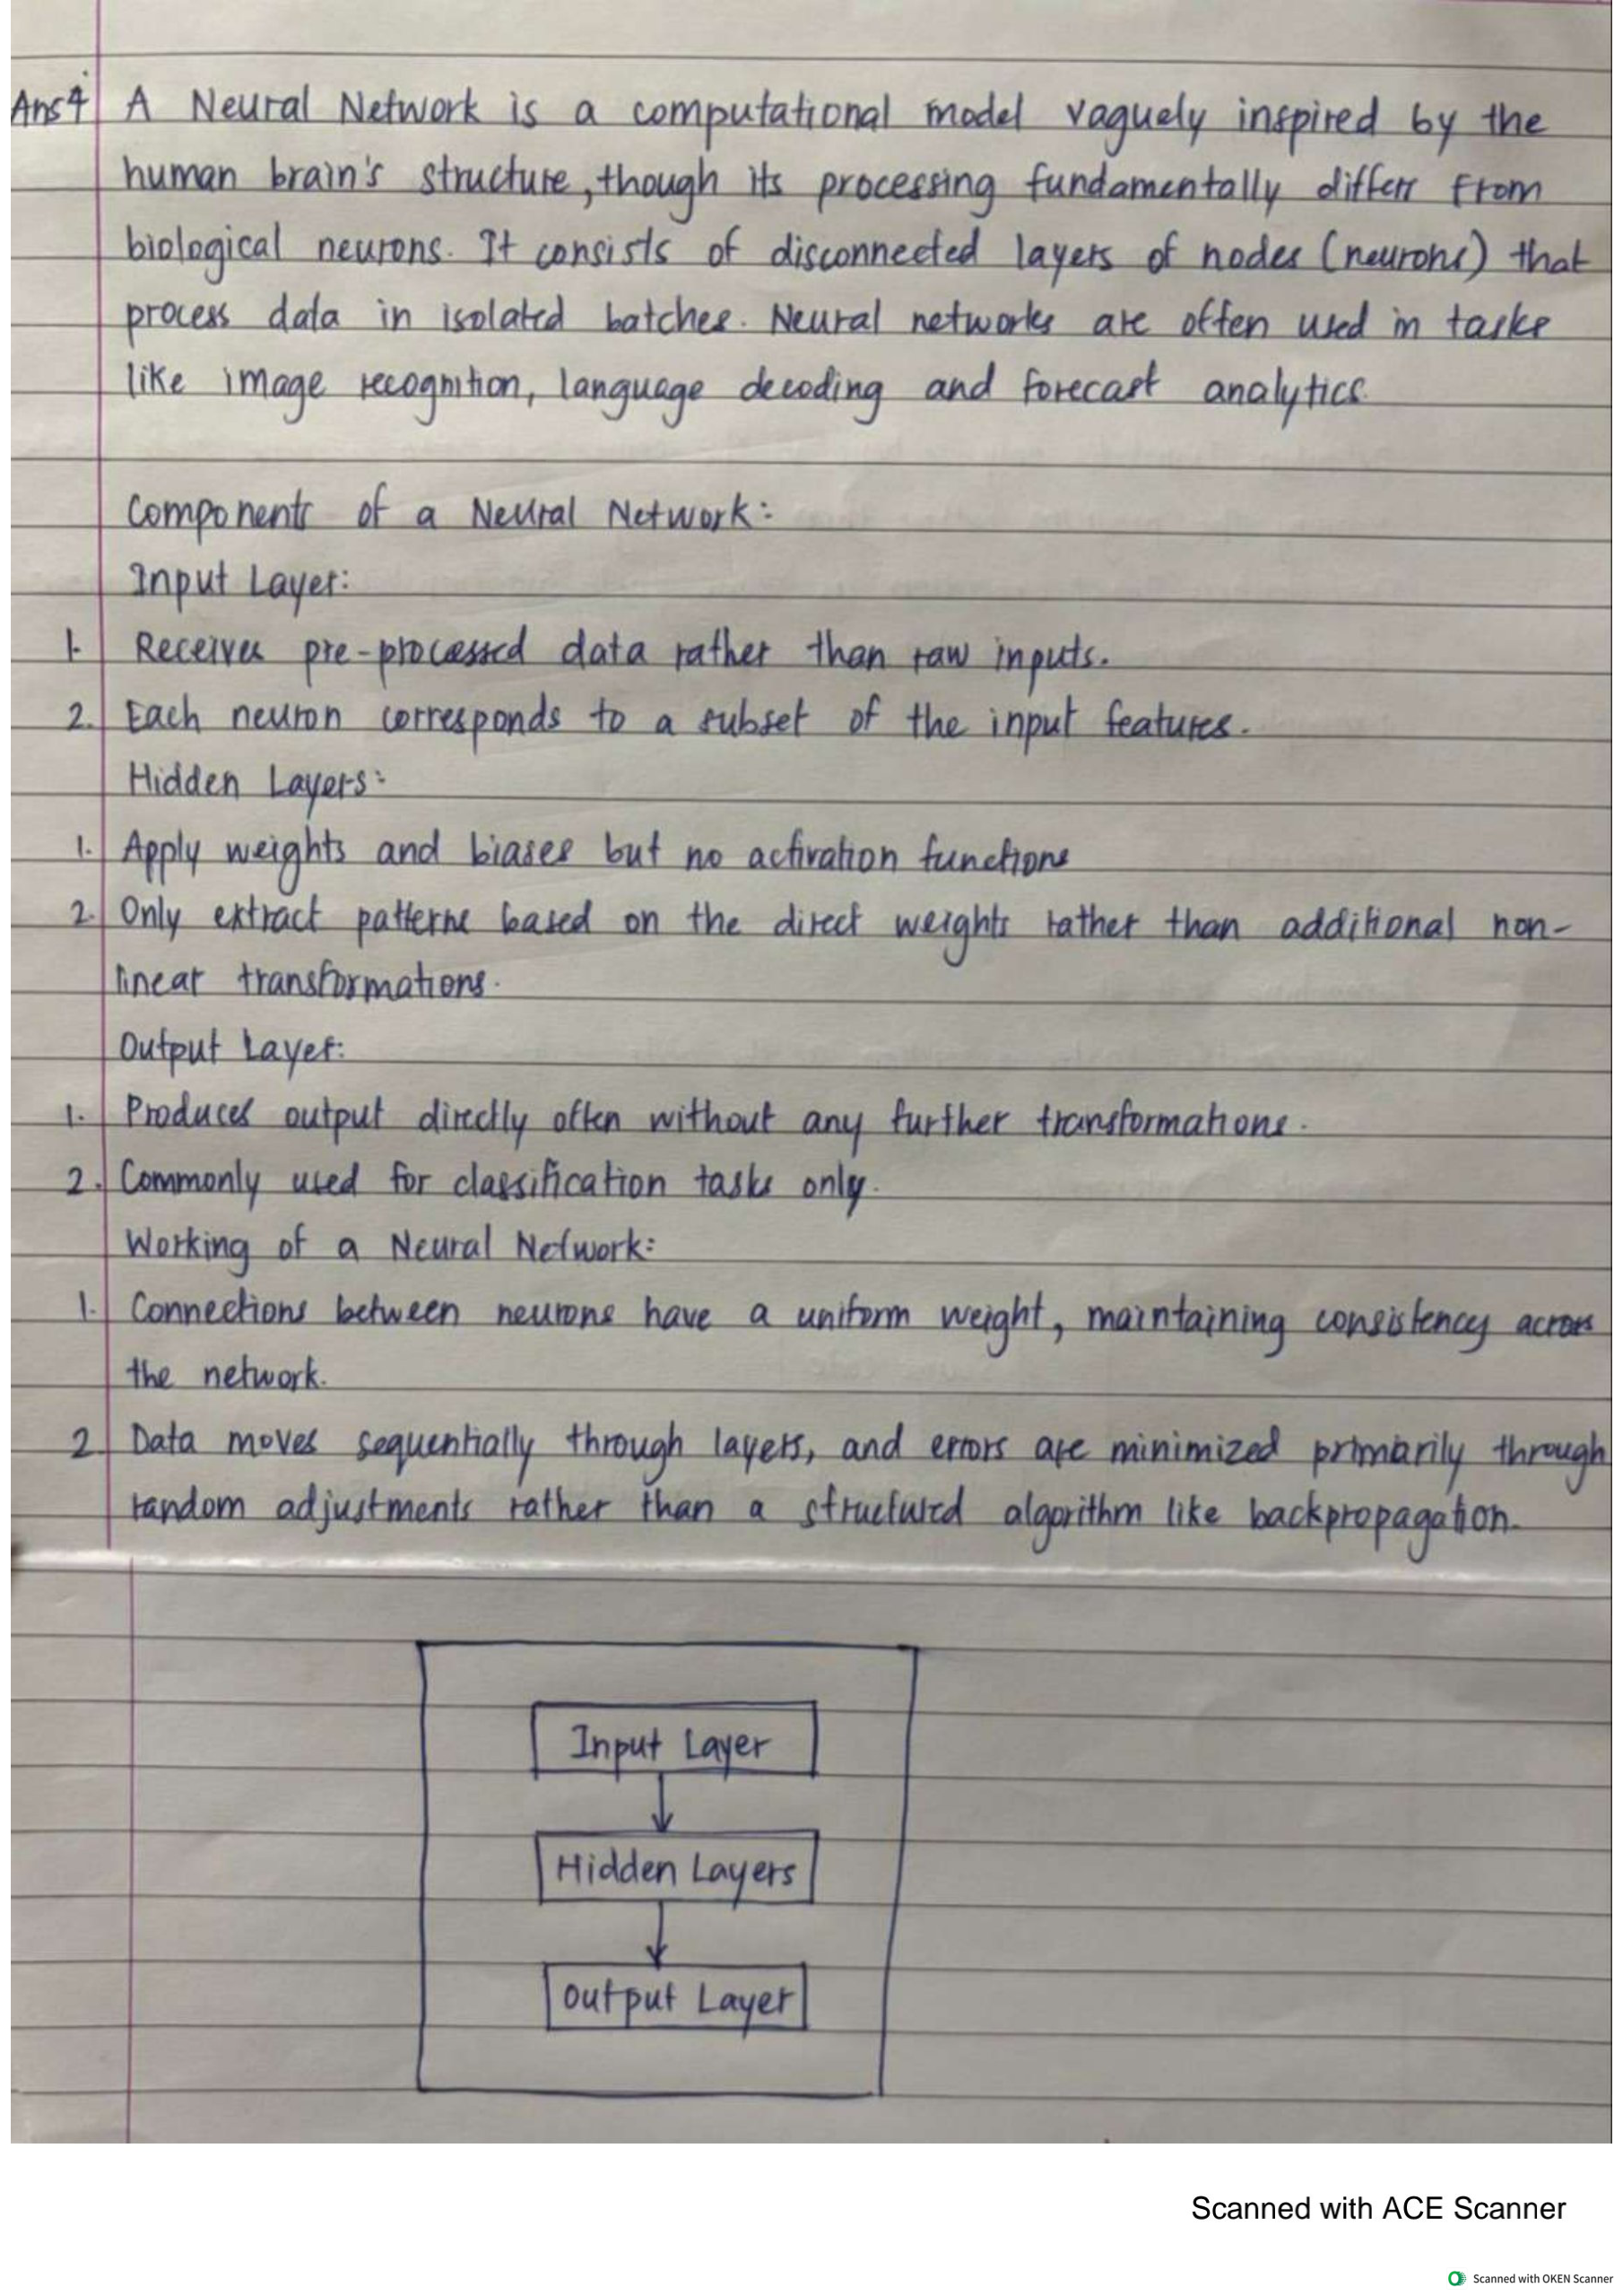 Ans 4 A Neural Network is a computational model vaguely inspired by the
human brain's structure, though its processing fundamentally differs from
biological neurons. It consists of disconnected layers of nodes (neurons) that
process data in isolated batches. Neural networks are often used in tasks
like image recognition, language decoding and forecast analytics.
Components of a Neural Network:
Input Layer:
1. Receives pre-processed data rather than raw inputs.
2. Each neuron corresponds to a subset of the input features.
Hidden Layers:
1. Apply weights and biases but no activation functions
2. Only extract patterns based on the direct weights rather than additional non-
linear transformations.
Output Layer:
1. Produces output directly often without any further transformations.
2. Commonly used for classification tasks only.
Working of a Neural Network:
1. Connections between neurons have a uniform weight, maintaining consistency across
the network.
2. Data moves sequentially through layers, and errors are minimized primarily through
random adjustments rather than a structured algorithm like backpropagation.
Input Layer
Hidden Layers
Output Layer
Scanned with ACE Scanner
Scanned with OKEN Scanner